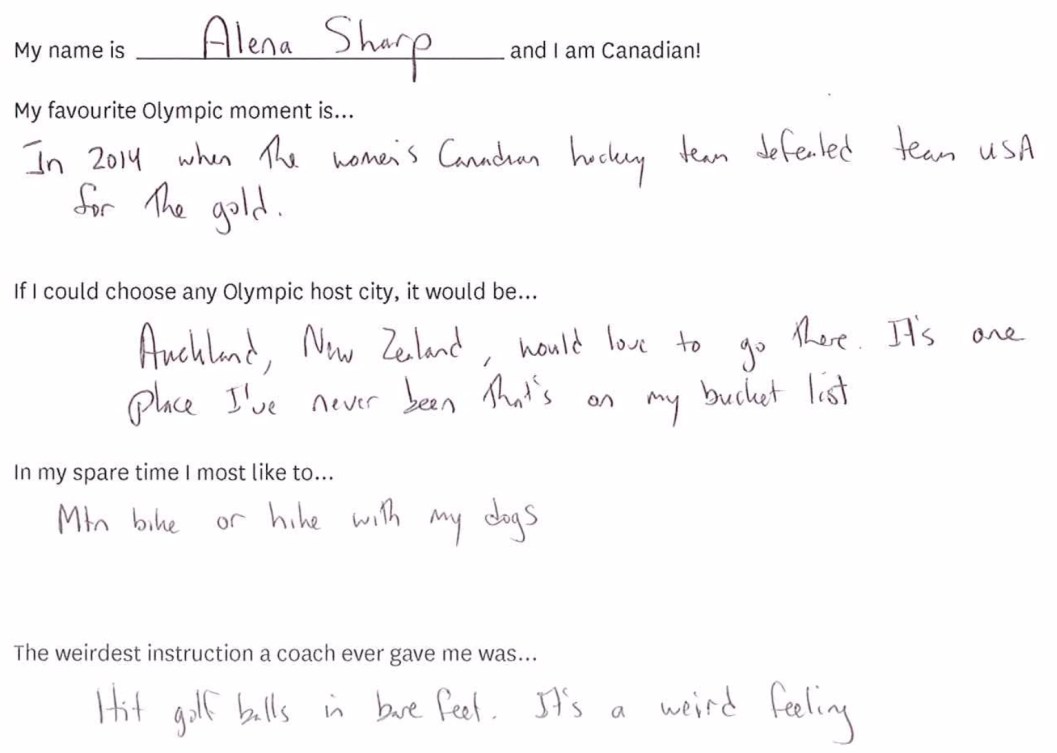 My name is Alena Sharp and I am Canadian!
My favourite Olympic moment is...
In 2014 when the women's Canadian hockey team defeated team USA
for the gold.
If I could choose any Olympic host city, it would be...
Auckland, New Zealand, would love to go there. It's one
place I've never been that's on my bucket list
In my spare time I most like to...
Mtn bike or hike with my dogs
The weirdest instruction a coach ever gave me was...
Hit golf balls in bare feet. It's a weird feeling